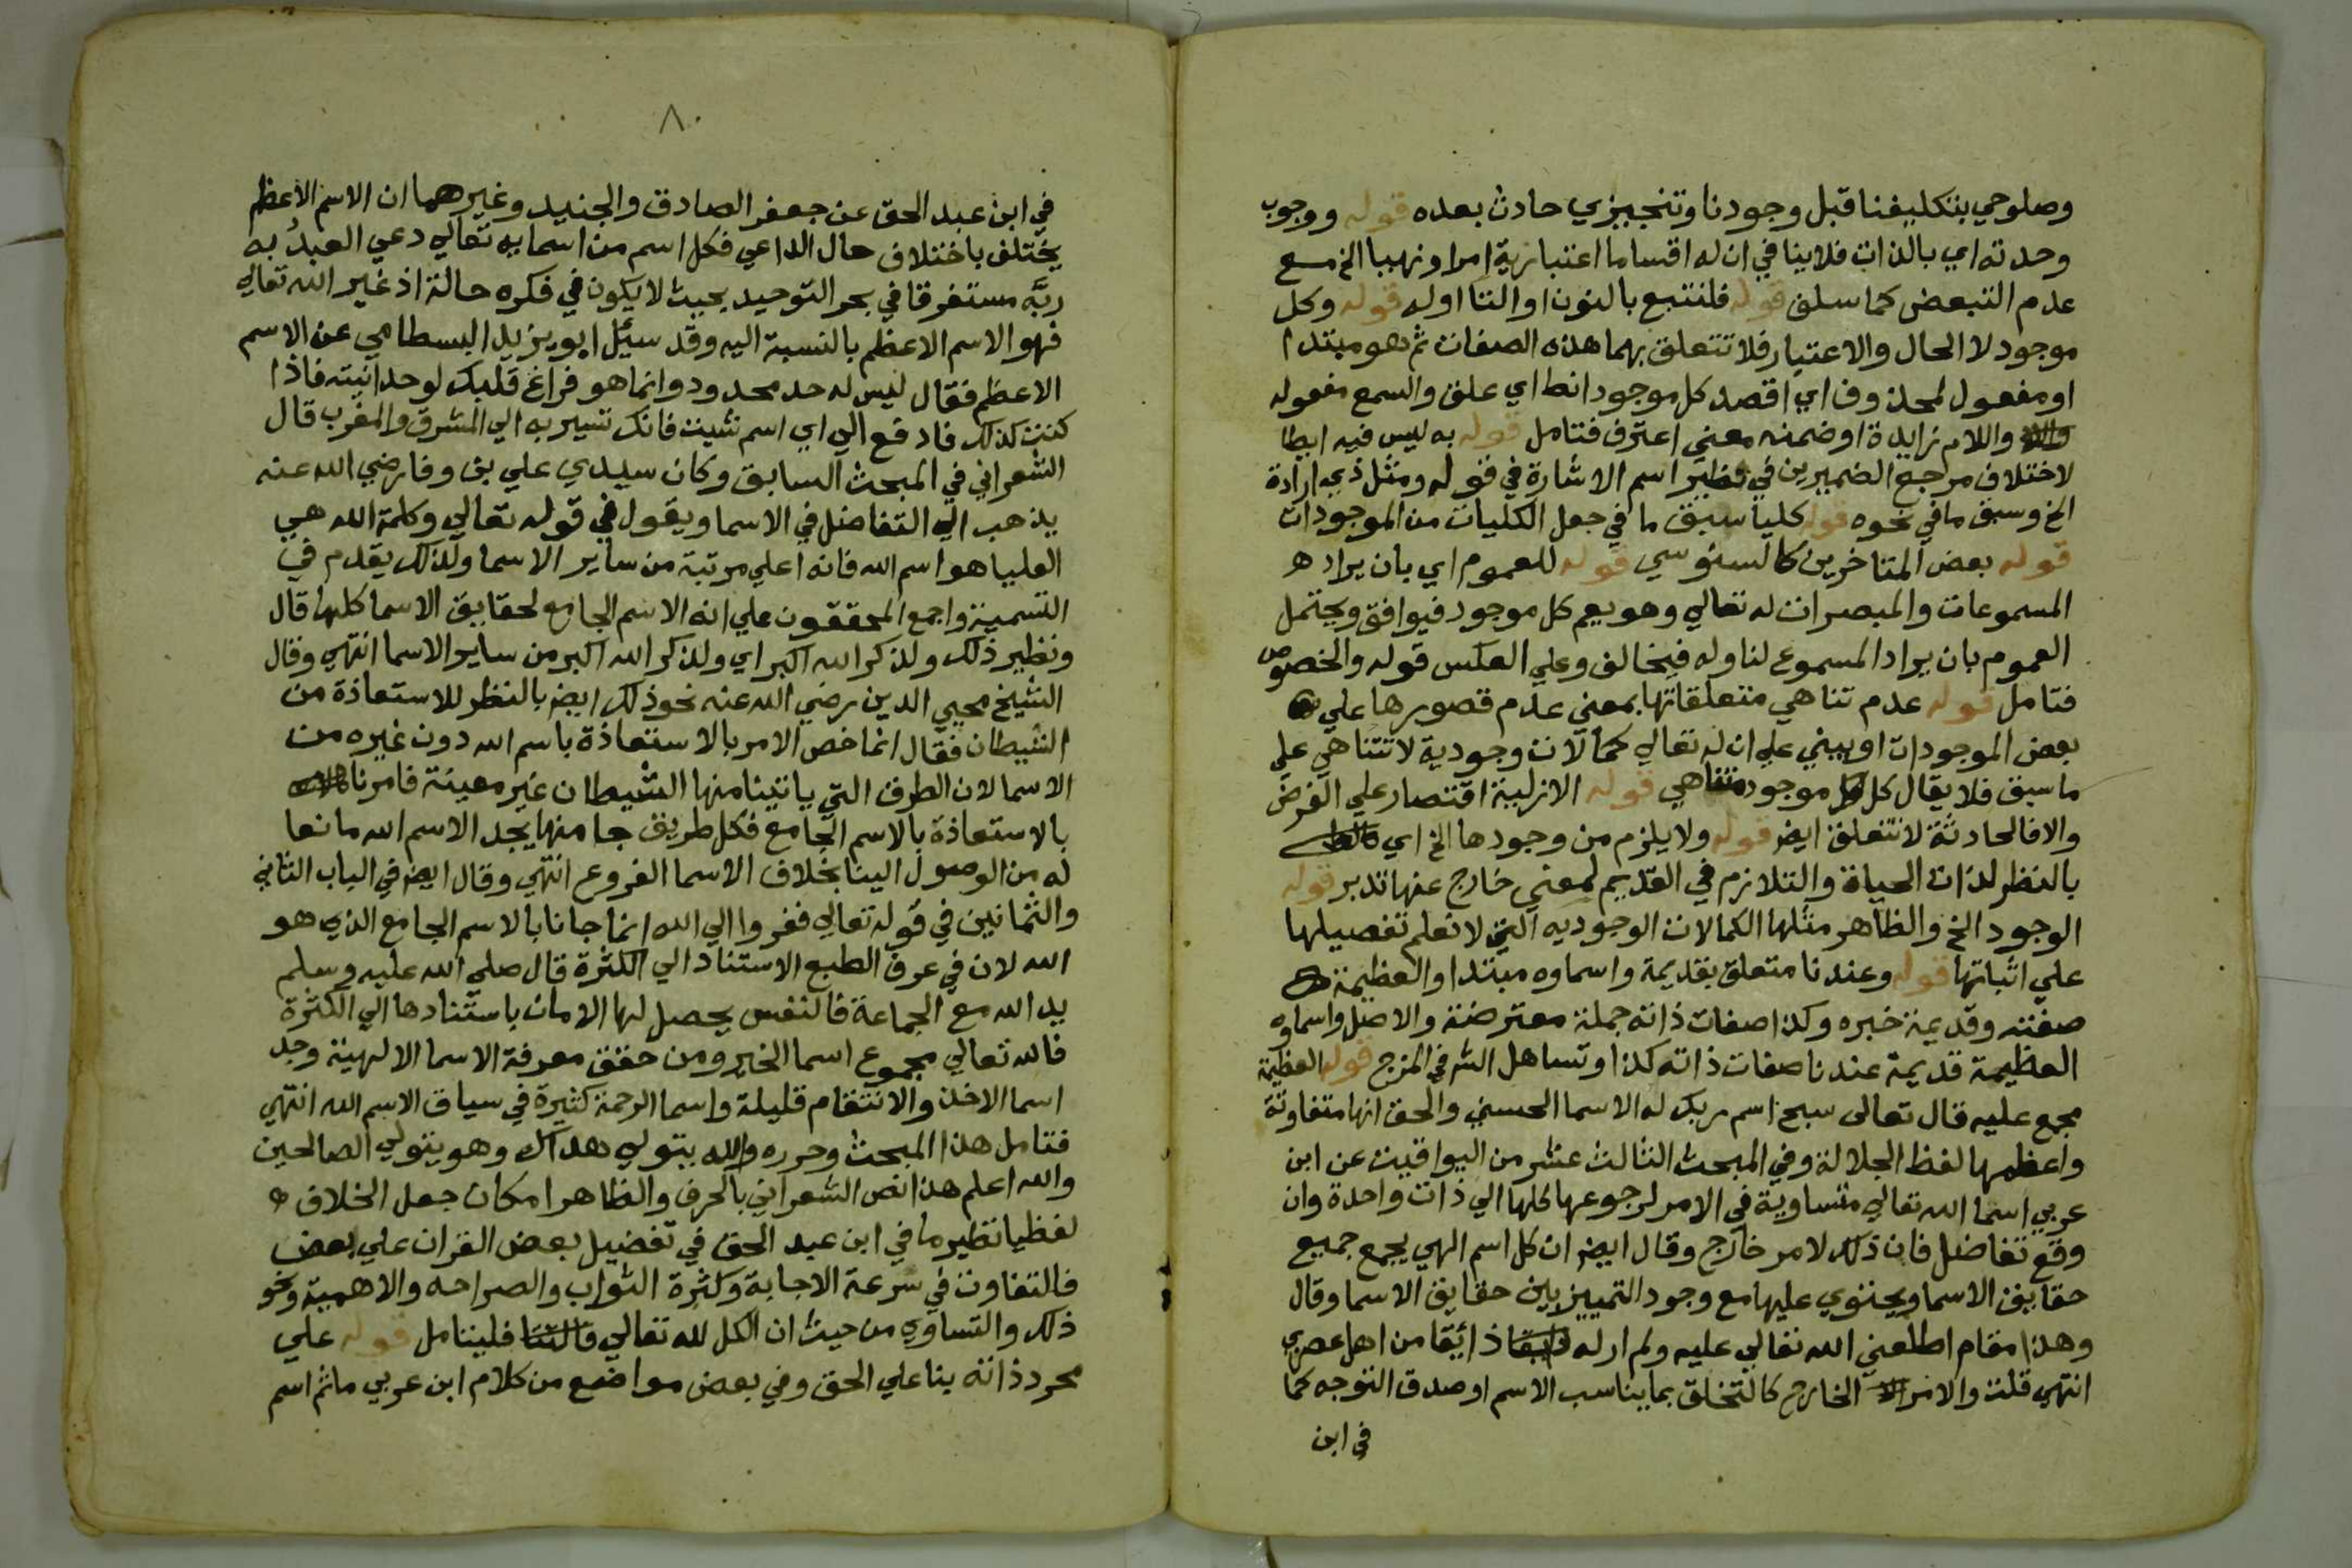 وصلوحي بتكليفنا قبل وجودنا وتنجيزي حادث بعده قوله ووجوب
وحدته اي بالذات فلا ينافي ان له اقساما اعتبارية امرا ونهيا الخ مع
عدم التبعض كما سلف قوله فلنتبع بالنون او التا اوله قوله وكل
موجود لا الحال والاعتبار فلا تتعلق بهما هذه الصفات ثم هو مبتدا
او مفعول لمحذوف اي اقصد كل موجود انط اي علق والسمع مفعوله
واللام زايدة او ضمنه معني اعترف فتامل قوله به ليس فيه ايطا
لاختلاف مرجع الضميرين في نظير اسم الاشارة في قوله ومثل ذي ارادة
الخ وسبق ما في نحوه قوله كليا سبق ما في جعل الكليات من الموجودات
قوله بعض المتاخرين كالسنوسي قوله للعموم اي بان يراد
المسموعات والمبصرات له تعالي وهو يعم كل موجود فيوافق ويحتمل
العموم بان يراد المسموع لنا وله فيخالف وعلي العكس قوله والخصوص
فتامل قوله عدم تناهي متعلقاتها بمعني عدم قصورها علي
بعض الموجودات او يبني علي ان له تعالي كمالات وجودية لا تتناهي علي
ما سبق فلا يقال كل موجود متناهي قوله الازلية اقتصار علي الفرض
والا فالحادثة لا تتعلق ايض قوله ولا يلزم من وجودها الخ اي
بالنظر لذات الحياة والتلازم في القديم لمعني خارج عنها تدبر قوله
الوجود الخ والظاهر مثلها الكمالات الوجوديه التي لا نعلم تفصيلها
علي اثباتها قوله وعندنا متعلق بقديمة واسماوه مبتدا والعظيمة
صفته وقديمة خبره وكذا صفات ذاته جملة معترضة والاصل واسماوه
العظيمة قديمة عندنا صفات ذاته كذا وتساهل الش في المزج قوله العظيمة
مجمع عليه قال تعالى سبح اسم ربك له الاسما الحسني والحق انها متفاوتة
واعظمها لفظ الجلالة وفي المبحث الثالث عشر من اليواقيت عن ابن
عربي اسما الله تعالي متساوية في الامر لرجوعها كلها الي ذات واحدة وان
وقع تفاضل فان ذلك لامر خارج وقال ايض ان كل اسم الهي يجمع جميع
حقايق الاسما ويحتوي عليها مع وجود التمييز بين حقايق الاسما وقال
وهذا مقام اطلعني الله تعالي عليه ولم ار له ذائقا من اهل عصري
انتهي قلت والامر الخارج كالتخلق بما يناسب الاسم او صدق التوجه كما
في ابن
٨٠
في ابن عبد الحق عن جعفر الصادق والجنيد وغيرهما ان الاسم الاعظم
يختلف باختلاف حال الداعي فكل اسم من اسمايه تعالي دعي العبدُ به
ربَّه مستغرقا في بحر التوحيد بحيث لا يكون في فكره حالة اذ غير الله تعالي
فهو الاسم الاعظم بالنسبة اليه وقد سيل ابو يزيد البسطامي عن الاسم
الاعظم فقال ليس له حد محدود وانما هو فراغ قلبك لوحدانيته فاذا
كنت كذلك فادفع الي اي اسم شيت فانك تسير به الي المشرق والمغرب قال
الشعراني في المبحث السابق وكان سيدي علي بن وفا رضي الله عنه
يذهب الي التفاضل في الاسما ويقول في قوله تعالي وكلمة الله هي
العليا هو اسم الله فانه اعلي مرتبة من ساير الاسما ولذلك يقدم في
التسمية واجمع المحققون علي انه الاسم الجامع لحقايق الاسما كلها قال
ونظير ذلك ولذكر الله اكبر اي ولذكر الله اكبر من ساير الاسما انتهي وقال
الشيخ محيي الدين رضي الله عنه نحو ذلك ايض بالنظر للاستعاذة من
الشيطان فقال انما خص الامر بالاستعاذة باسم الله دون غيره من
الاسما لان الطرف التي ياتينا منها الشيطان غير معينة فامرنا
بالاستعاذة بالاسم الجامع فكل طريق جا منها يجد الاسم الله مانعا
له من الوصول الينا بخلاف الاسما الفروع انتهي وقال ايض في الباب الثاني
والثمانين في قوله تعالي ففروا الي الله انما جانا بالاسم الجامع الذي هو
الله لان في عرف الطبع الاستناد الي الكثرة قال صلي الله عليه وسلم
يد الله مع الجماعة فالنفس يحصل لها الامان باستنادها الي الكثرة
فالله تعالي مجموع اسما الخير ومن حقق معرفة الاسما الالهية وجد
اسما الاخذ والانتقام قليلة واسما الرحمة كثيرة في سياق الاسم الله انتهي
فتامل هذا المبحث وحرره والله يتولي هداك وهو يتولي الصالحين
والله اعلم هذا نص الشعراني بالحرف والظاهر امكان جعل الخلاف
لفظيا نظير ما في ابن عبد الحق في تفضيل بعض القران علي بعض
فالتفاوت في سرعة الاجابة وكثرة الثواب والصراحه والاهمية ونحو
ذلك والتساوي من حيث ان الكل لله تعالي فليتامل قوله علي
مجرد ذاته بنا علي الحق وفي بعض مواضع من كلام ابن عربي ما ثم اسم